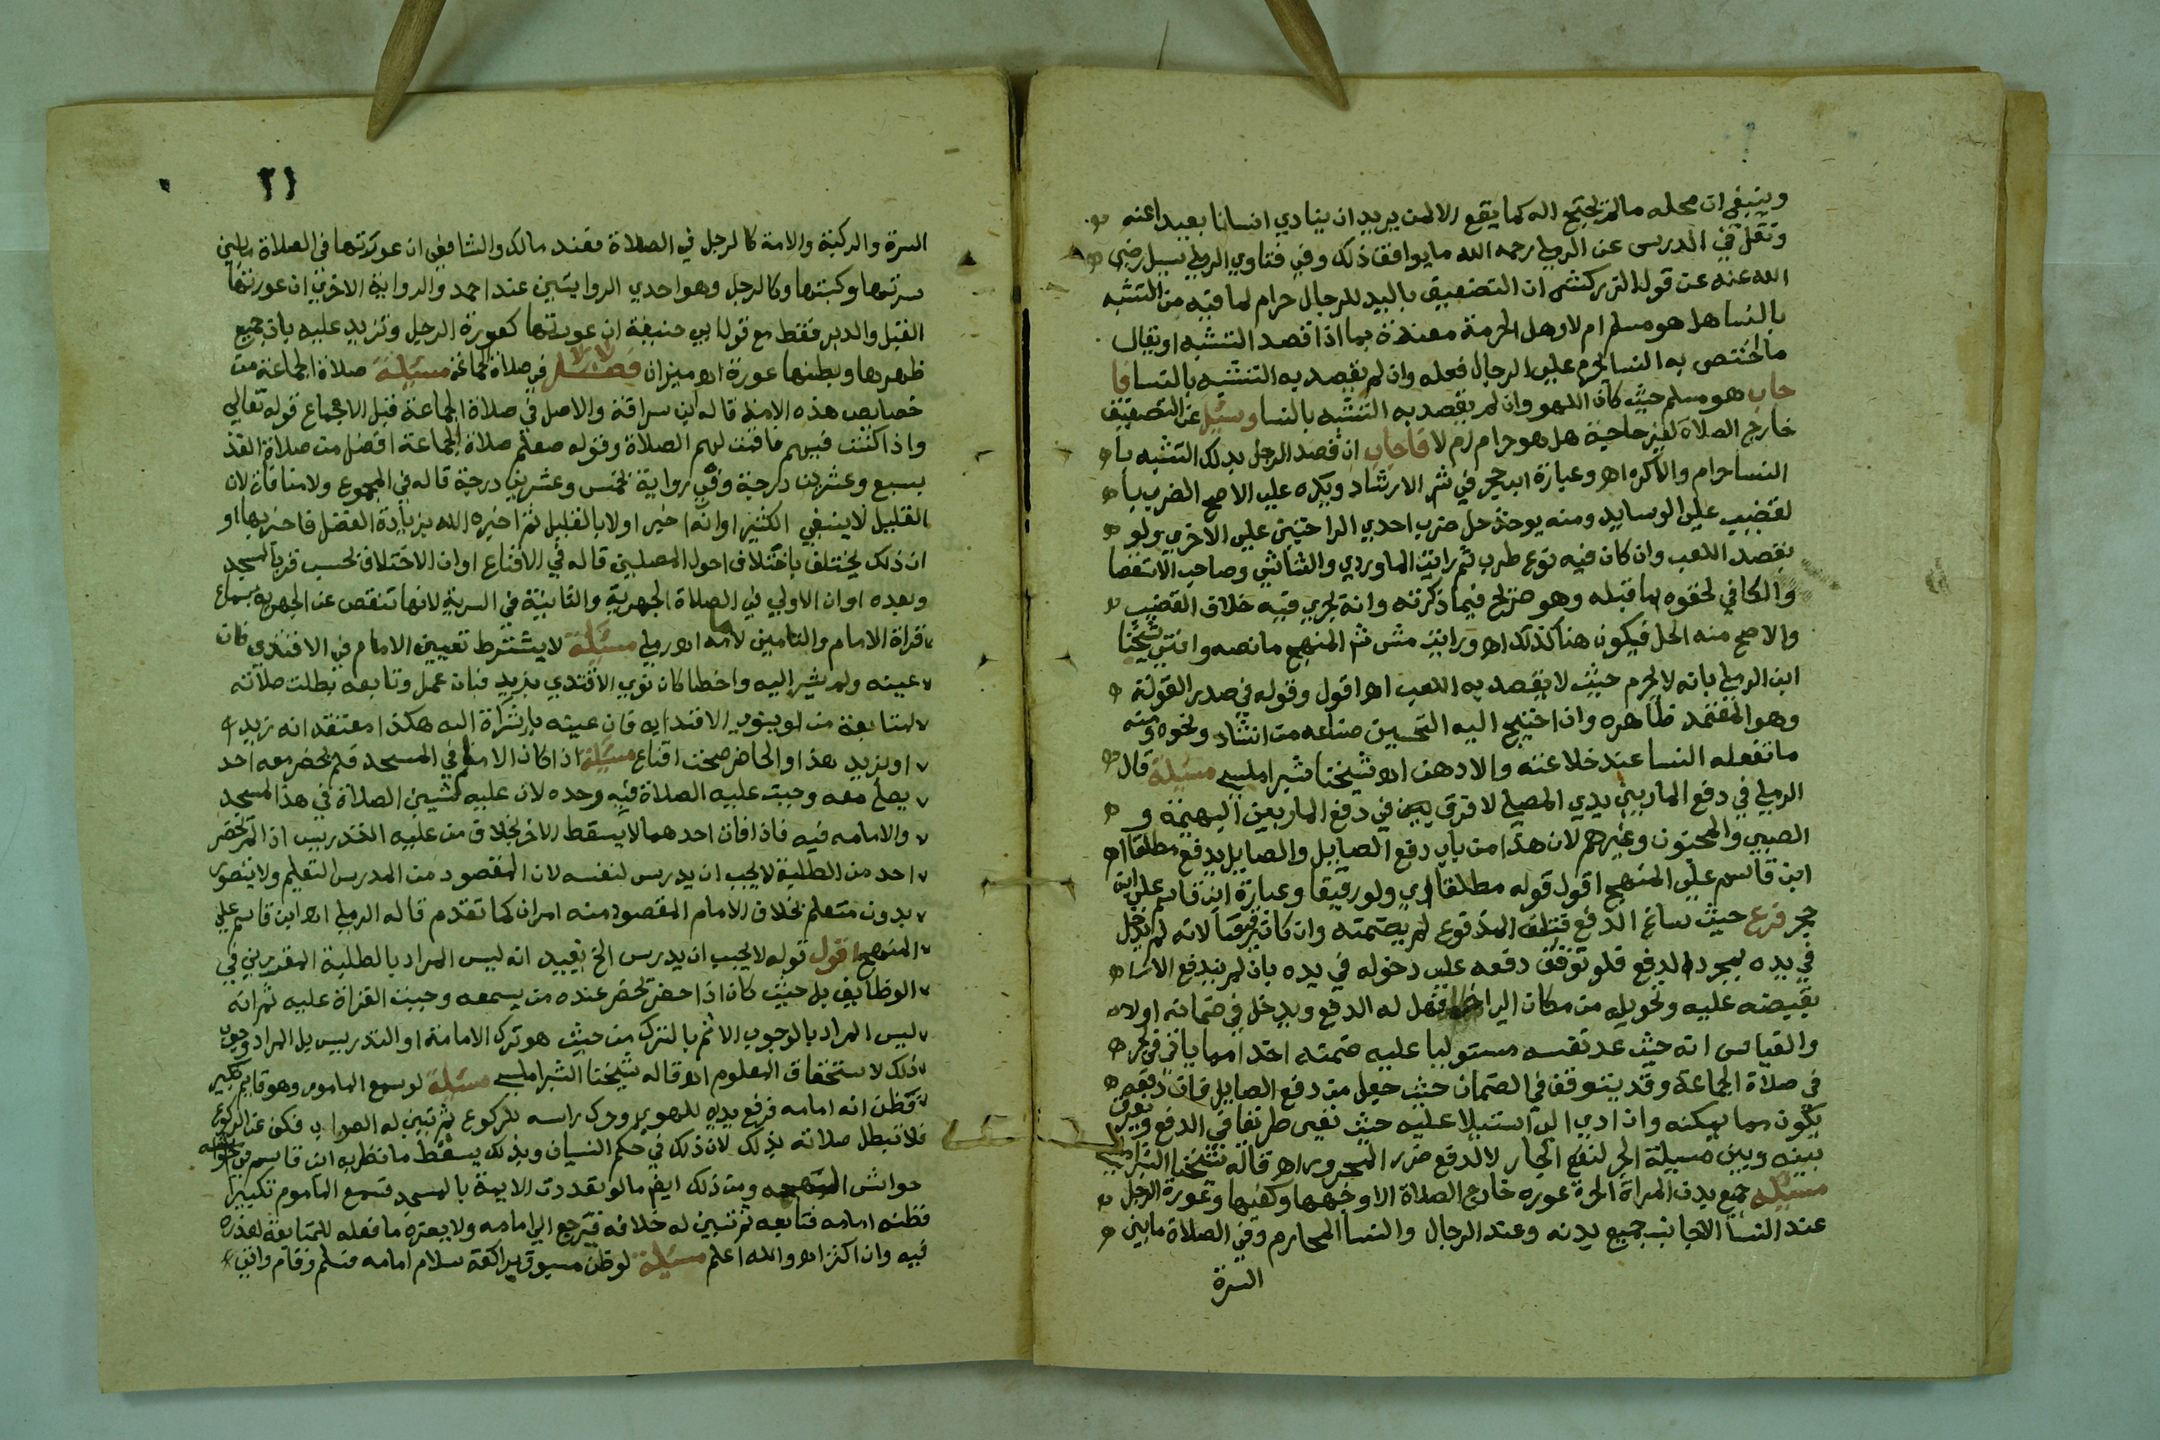 وينبغي ان محله مالم يحتج اله كما يقع الا لمن يريد ان ينادي انسانا بعيدا عنه
ونقل في الدرس عن الرملي رحمه الله ما يوافق ذلك وفي فتاوي الرملي سيل رضي
الله عنه عن قول الزركشي ان التصفيق باليد للرجال حرام لما فيه من التشبه
بالنسا هل هو مسلم ام لا وهل الحرمة مقيدة بما اذا قصد التشبه او يقال
ما اختص به النسا يحرم علي الرجال فعله وان لم يقصد به التشبه بالنسا فا
جاب هو مسلم حيث كان للهو وان لم يقصد به التشبه بالنسا وسيل عن التصفيق
خارج الصلاة لغير حاجة هل هو حرام ام لا فاجاب ان قصد الرجل بذلك التشبه با
النسا حرام والا كره اه وعبارة ابن حجر في شر الارشاد ويكره علي الاصح الضرب با
لقضيب علي الوسايد ومنه يوخذ حل ضرب احدي الراحتين علي الاخري ولو
بقصد اللعب وان كان فيه نوع طرب ثم رايت الماوردي والشاشي وصاحب الاستقصا
والكافي لحقوه بما قبله وهو صريح فيما ذكرته وانه يجري فيه خلاف القضيب
والاصح منه الحل فيكون هنا كذلك اه ورايت مش شر المنهج ما نصه وافتي شيخنا
ابن الرملي بانه لا يحرم حيث لا يقصد به اللعب اه اقول وقوله في صدر القولة
وهو المعتمد ظاهره وان احتيج اليه التحسين صناعه من انشاد ونحوه ومنه
ما تفعله النسا عند خلاعته والا دهف اه شيخنا شبراملسي مسيلة قال
الرملي في دفع المار بين يدي المصلي لا فرق بين في دفع المار بين البهيمة و
الصبي والمجنون وغيرهم لان هذا من باب دفع الصايل والصايل يدفع مطلقا اه
ابن قاسم علي المنهج اقول قوله مطلقا اي ولو رقيقا وعبارة ابن قاسم علي ابن
حجر فرع حيث ساغ الدفع فتلف المدفوع لم يضمنه وان كان رقيقا لانه لم يدخل
في يده بمجرد الدفع فلو توقف دفعه علي دخوله في يده بان لم يندفع الا
بقبضه عليه وتحويله من مكان الي اخر فهل له الدفع ويدخل في ضمانه اولا
والقياس انه حيث عد نفسه مستوليا عليه ضمنه اخذا مما ياتي في الجر
في صلاة الجماعة وقد يتوقف في الضمان حيث جعل من دفع الصايل فان دفعه
يكون مما يمكنه وان ادي الي استيلا عليه حيث تعين طريقا في الدفع ويفرق
بينه وبين مسيلة الجر لنفع الجار لا لدفع ضرر المجرور اه قاله شيخنا الشبراملسي
مسيلة جميع بدن المراة الحرة عورة خارج الصلاة الا وجهها وكفيها وعورة الرجل
عند النسا الاجانب جميع بدنه وعند الرجال والنسا المحارم وفي الصلاة ما بين
السرة
٢١
السرة والركبة والامة كالرجل في الصلاة فعند مالك والشافعي ان عورتها في الصلاة ما بين
سرتها وركبتها وكالرجل وهو احدي الروايتين عند احمد والرواية الاخري ان عورتها
القبل والدبر فقط مع قول ابي حنيفة ان عورتها كعورة الرجل وتزيد عليه بان جميع
ظهرها وبطنها عورة اه ميزان فصل في صلاة الجماعة مسيلة صلاة الجماعة من
خصايص هذه الامة قاله ابن سراقة والاصل في صلاة الجماعة قبل الاجماع قوله تعالي
واذا كنت فيهم فاقمت لهم الصلاة وقوله صلعم صلاة الجماعة افضل من صلاة الفذ
بسبع وعشرين درجة وفي رواية بخمس وعشرين درجة قاله في المجموع ولا منافاة لان
القليل لا ينفي الكثير او انه اخبر اولا بالقليل ثم اخبره الله بزيادة الفضل فاخبر بها او
ان ذلك يختلف باختلاف احوال المصلين قاله في الاقناع او ان الاختلاف بحسب قرب المسجد
وبعده او ان الاولي في الصلاة الجهرية والثانية في السرية لانها تنقص عن الجهرية بسماع
قراة الامام والتامين لامامه اه رملي مسيلة لا يشترط تعيين الامام في الاقتدا فان
عينه ولم يشر اليه واخطا كان نوي الاقتدي بزيد فبان عمرا وتابعه بطلت صلاته
لمتابعة من لم ينو الاقتدا به فان عينه باشارة اليه هكذا معتقدا انه زيد
او بزيد هذا او الحاضر صحت اقناع مسيلة اذا كان الامام في المسجد فلم يحضر معه احد
يصلي معه وجبت عليه الصلاة فيه وحده لان عليه شيين الصلاة في هذا المسجد
والامامه فيه فاذا فات احدهما لا يسقط الاخر بخلاف من عليه التدريس اذا لم يحضر
احد من الطلبة لا يجب ان يدرس لنفسه لان المقصود من المدرس التعليم ولا يتصور
بدون متعلم بخلاف الامام المقصود منه امران كما تقدم قاله الرملي اه ابن قاسم علي
المنهج اقول قوله لا يجب ان يدرس الخ يفيد انه ليس المراد بالطلبة المقررين في
الوظايف بل حيث كان اذا حضر يحضر عنده من يسمعه وجبت القراة عليه ثم انه
ليس المراد بالوجوب الاثم بالترك من حيث هو ترك الامامة او التدريس بل المراد وجوب
ذلك لاستحقاق المعلوم اه قاله شيخنا الشبراملسي مسيلة لو سمع الماموم وهو قايم تكبير
فظن انه امامه فرفع يديه للهوي وحرك راسه للركوع ثم تبين له الصواب فكف عن الركوع
فلا تبطل صلاته بذلك لان ذلك في حكم النسيان وبذلك يسقط ما نظر به ابن قاسم في
حواش المنهج ومن ذلك ايضا ما لو تعددت الايمة بالمسجد فسمع الماموم تكبيرا
فظنه امامه فتابعه ثم تبين له خلافه فيرجع الي امامه ولا يضره ما فعله للمتابعة لعذره
فيه وان اكثر اه والله اعلم مسيلة لو ظن مسبوق بركعة سلام امامه فسلم وقام واتي